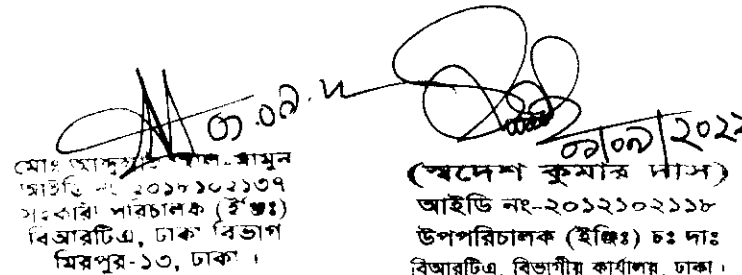 ০১.০৯.২২
মোঃ আব্দুল্লাহ আল-মামুন
আইডি নং ২০১৮১০২১৩৭
সহকারী পরিচালক (ইঞ্জিঃ)
বিআরটিএ, ঢাকা বিভাগ
মিরপুর-১৩, ঢাকা ।
০১/০৯/২০২২
(স্বদেশ কুমার দাস)
আইডি নং-২০১২১০২১১৮
উপপরিচালক (ইঞ্জিঃ) চঃ দাঃ
বিআরটিএ, বিভাগীয় কার্যালয়, ঢাকা।